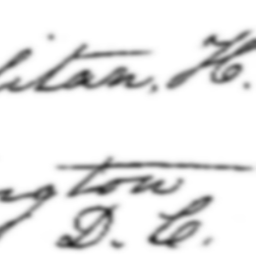 litan. H.
ngton
D. C.